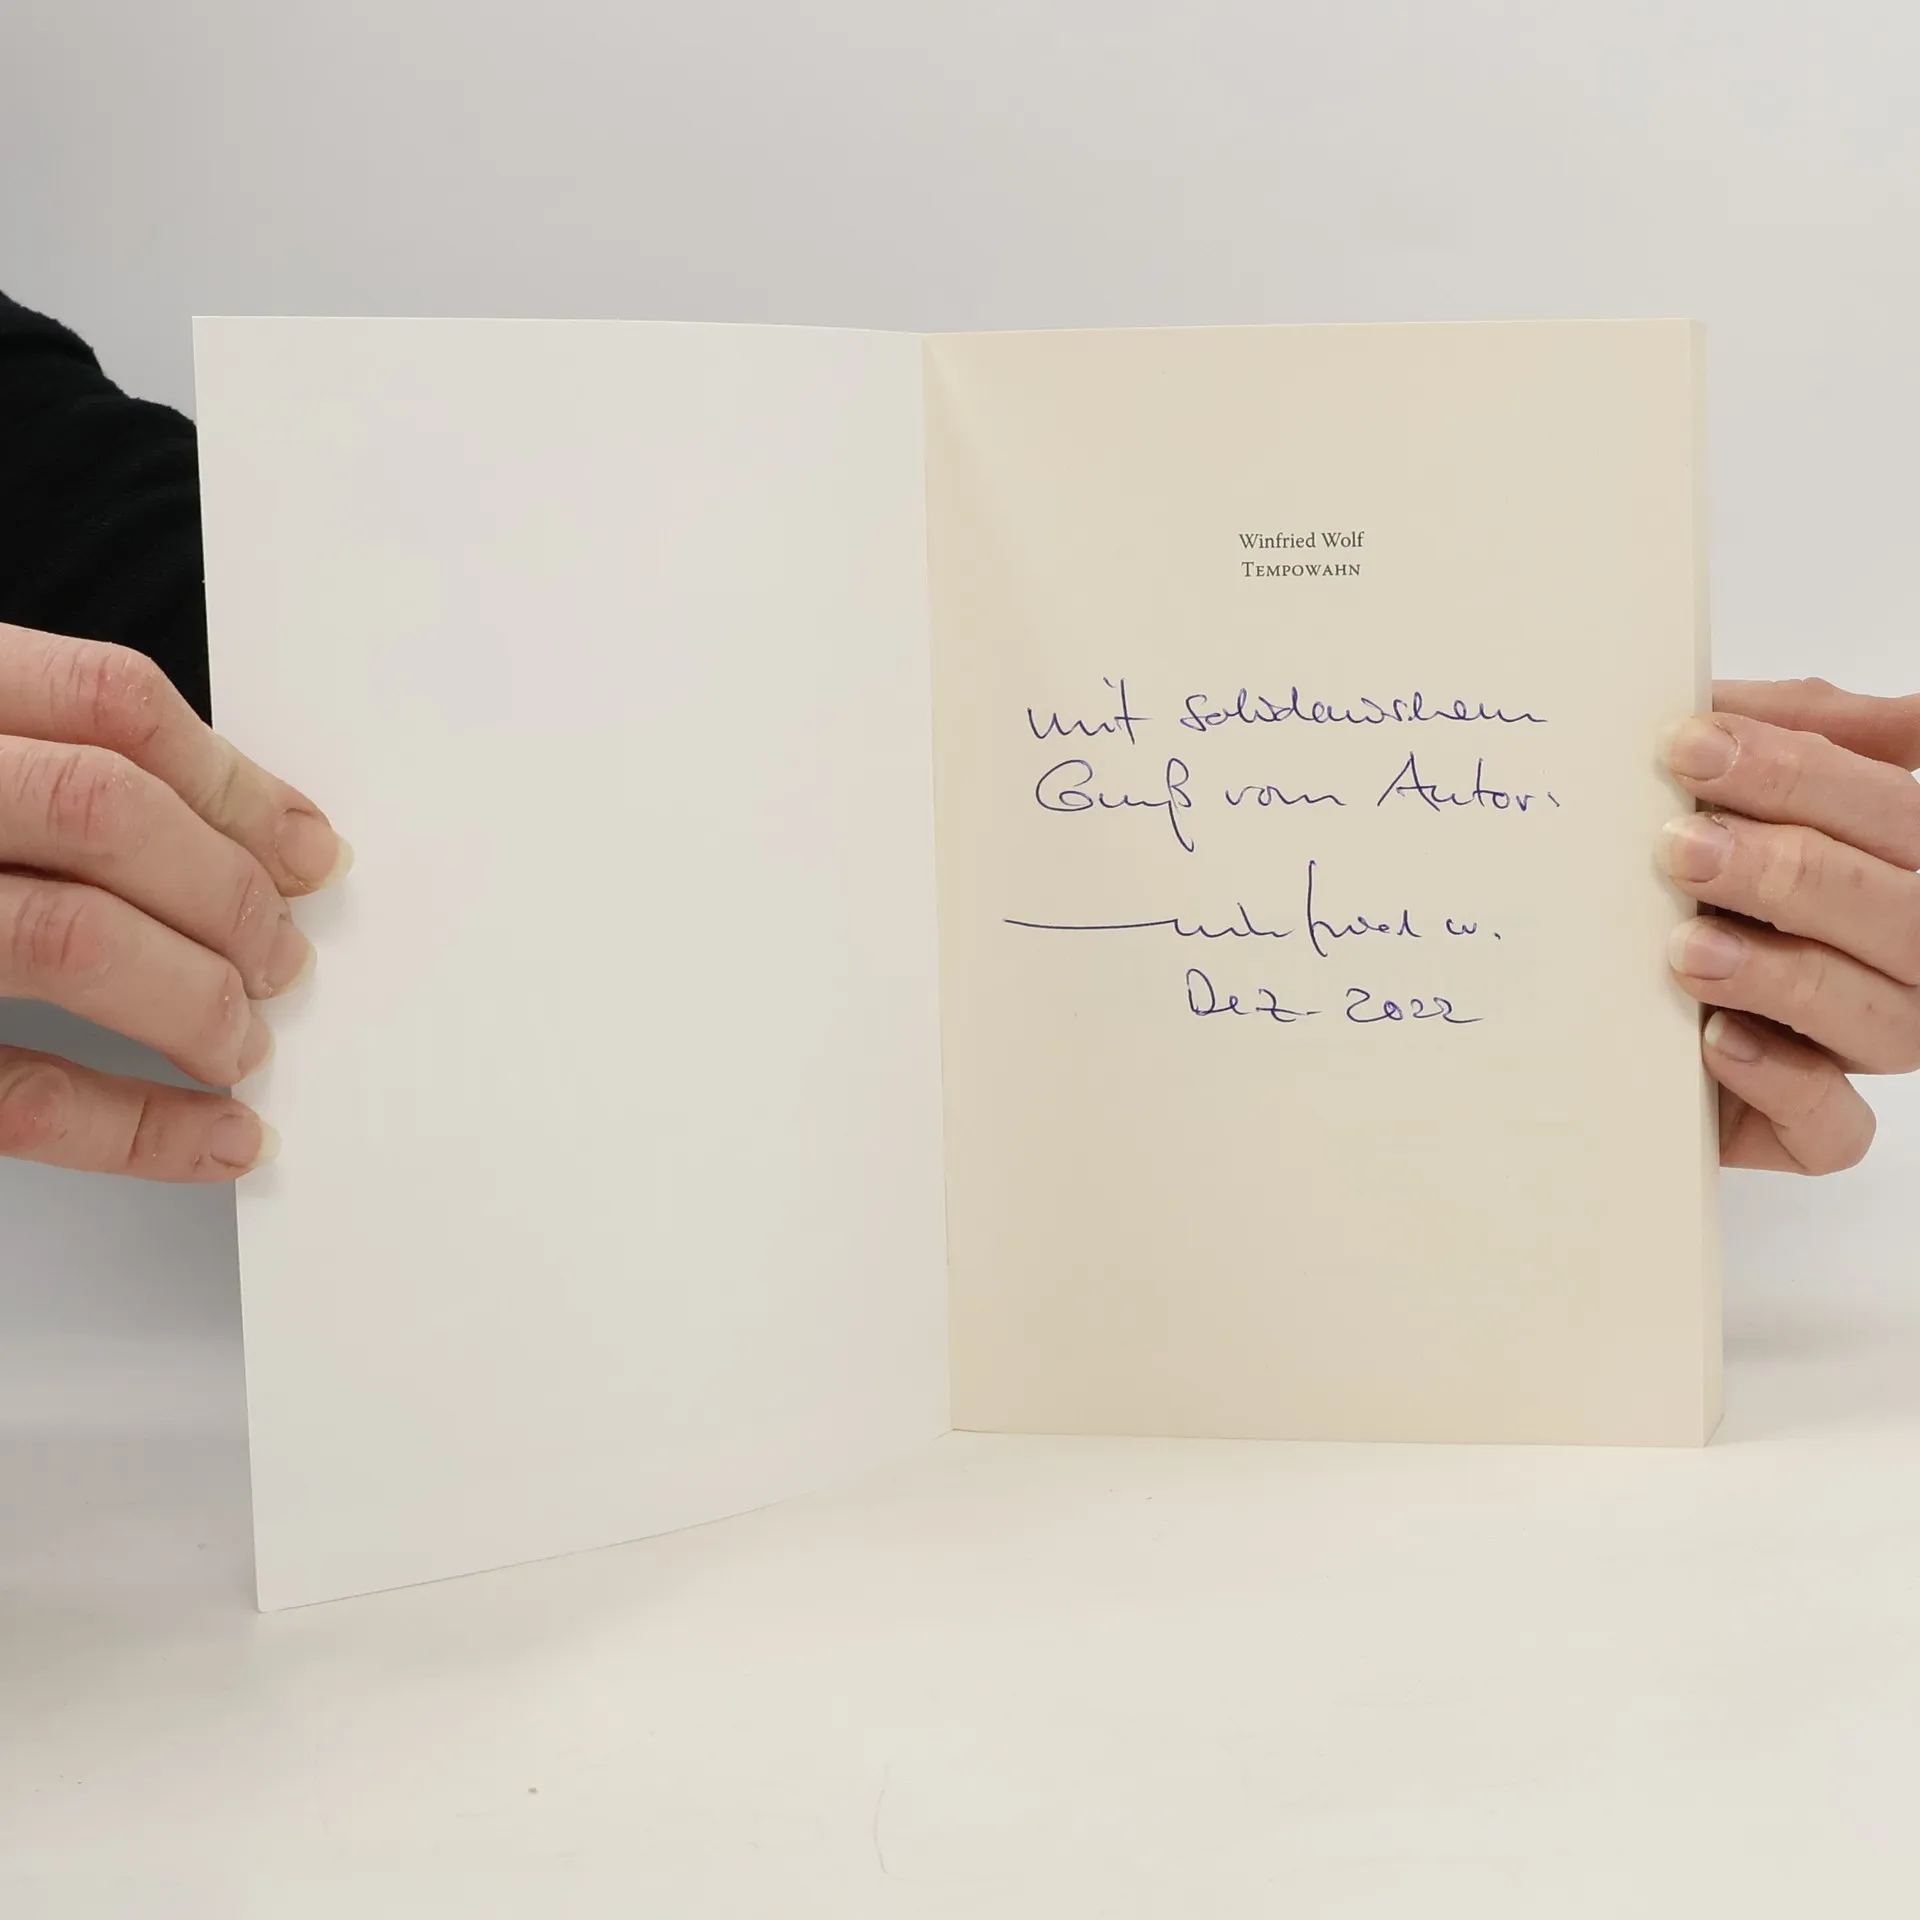 Winfried Wolf
TEMPOWAHN
mit solidarischem
Gruß vom Autor:
Winfried W.
Dez. 2022